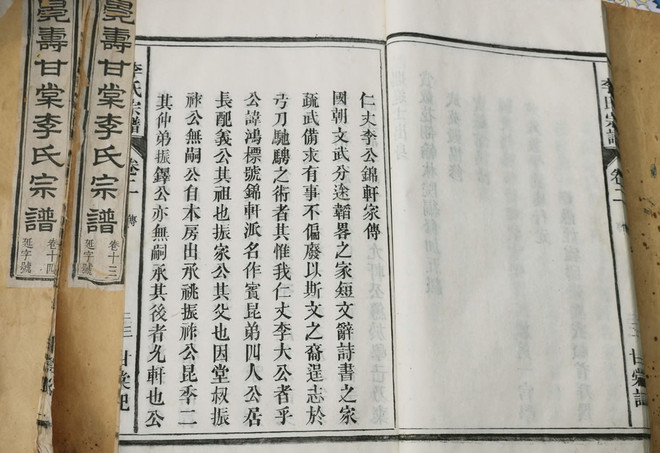 李氏宗譜 卷二 甘棠記
仁丈李公錦軒家傳
國朝文武分途韜畧之家短文辭詩書之家
疏武備求有事不偏廢以斯文之裔逞志於
弓刀馳騁之術者其惟我仁丈李大公者乎
公諱鴻標號錦軒派名作賓昆弟四人公居
長配義公其祖也振家公其父也因堂叔振
祚公無嗣公自本房出承祧振祚公昆季二
其仲弟振鐸公亦無嗣承其後者允軒也公
李氏宗譜 卷二 傳 三三 甘棠記
壽甘棠李氏宗譜
卷十三
延字號
壽甘棠李氏宗譜
卷十四
延字號